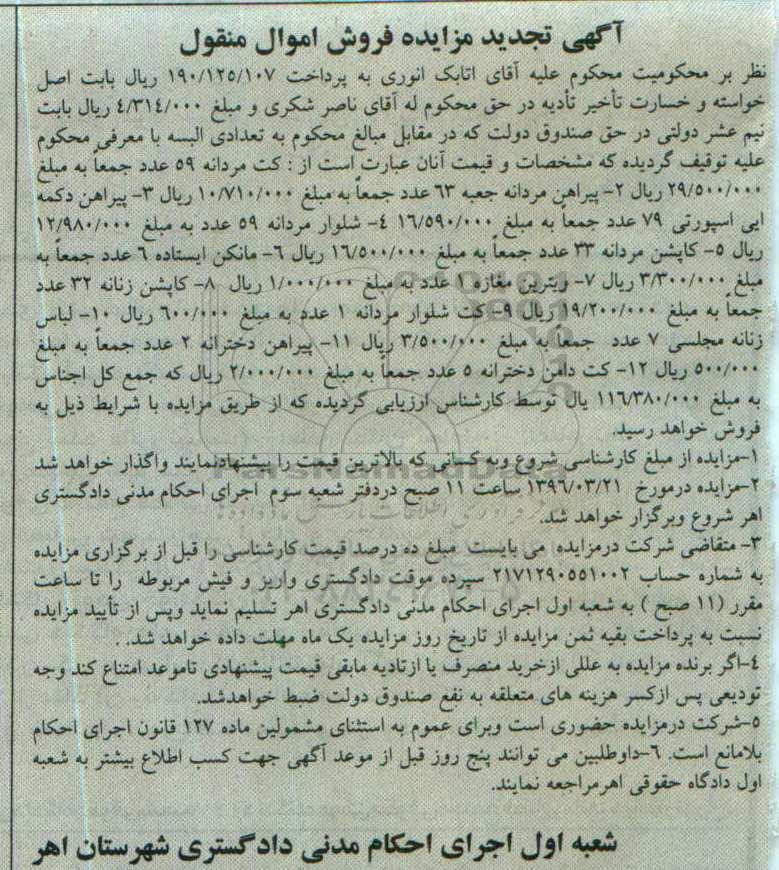 آگهی تجدید مزایده فروش اموال منقول
نظر بر محکومیت محکوم علیه آقای اتابک انوری به پرداخت ۱۹۰/۱۲۵/۱۰۷ ریال بابت اصل
خواسته و خسارت تأخیر تأدیه در حق محکوم له آقای ناصر شکری و مبلغ ۴/۳۱۴/۰۰۰ ریال بابت
نیم عشر دولتی در حق صندوق دولت که در مقابل مبالغ محکوم به تعدادی البسه با معرفی محکوم
علیه توقیف گردیده که مشخصات و قیمت آنان عبارت است از : کت مردانه ۵۹ عدد جمعاً به مبلغ
۲۹/۵۰۰/۰۰۰ ریال ۲- پیراهن مردانه جعبه ۶۳ عدد جمعاً به مبلغ ۱۰/۷۱۰/۰۰۰ ریال ۳- پیراهن دکمه
ایی اسپورتی ۷۹ عدد جمعاً به مبلغ ۱۶/۵۹۰/۰۰۰ ۴- شلوار مردانه ۵۹ عدد به مبلغ ۱۲/۹۸۰/۰۰۰
ریال ۵- کاپشن مردانه ۳۳ عدد جمعاً به مبلغ ۱۶/۵۰۰/۰۰۰ ریال ۶- مانکن ایستاده ۶ عدد جمعاً به
مبلغ ۳/۳۰۰/۰۰۰ ریال ۷- ویترین مغازه ۱ عدد به مبلغ ۱/۰۰۰/۰۰۰ ریال ۸- کاپشن زنانه ۳۲ عدد
جمعاً به مبلغ ۱۹/۲۰۰/۰۰۰ ریال ۹- کت شلوار مردانه ۱ عدد به مبلغ ۶۰۰/۰۰۰ ریال ۱۰- لباس
زنانه مجلسی ۷ عدد جمعاً به مبلغ ۳/۵۰۰/۰۰۰ ریال ۱۱- پیراهن دخترانه ۲ عدد جمعاً به مبلغ
۵۰۰/۰۰۰ ریال ۱۲- کت دامن دخترانه ۵ عدد جمعاً به مبلغ ۲/۰۰۰/۰۰۰ ریال که جمع کل اجناس
به مبلغ ۱۱۶/۳۸۰/۰۰۰ یال توسط کارشناس ارزیابی گردیده که از طریق مزایده با شرایط ذیل به
فروش خواهد رسید.
۱-مزایده از مبلغ کارشناسی شروع وبه کسانی که بالاترین قیمت را پیشنهادنمایند واگذار خواهد شد
۲-مزایده درمورخ ۱۳۹۶/۰۳/۲۱ ساعت ۱۱ صبح دردفتر شعبه سوم اجرای احکام مدنی دادگستری
اهر شروع وبرگزار خواهد شد.
۳- متقاضی شرکت درمزایده می بایست مبلغ ده درصد قیمت کارشناسی را قبل از برگزاری مزایده
به شماره حساب ۲۱۷۱۲۹۰۵۵۱۰۰۲ سپرده موقت دادگستری واریز و فیش مربوطه را تا ساعت
مقرر (۱۱ صبح ) به شعبه اول اجرای احکام مدنی دادگستری اهر تسلیم نماید وپس از تأیید مزایده
نسبت به پرداخت بقیه ثمن مزایده از تاریخ روز مزایده یک ماه مهلت داده خواهد شد. .
۴-اگر برنده مزایده به عللی ازخرید منصرف یا ازتادیه مابقی قیمت پیشنهادی تاموعد امتناع کند وجه
تودیعی پس ازکسر هزینه های متعلقه به نفع صندوق دولت ضبط خواهدشد.
۵-شرکت درمزایده حضوری است وبرای عموم به استثنای مشمولین ماده ۱۲۷ قانون اجرای احکام
بلامانع است. ۶-داوطلبین می توانند پنج روز قبل از موعد آگهی جهت کسب اطلاع بیشتر به شعبه
اول دادگاه حقوقی اهرمراجعه نمایند.
شعبه اول اجرای احکام مدنی دادگستری شهرستان اهر